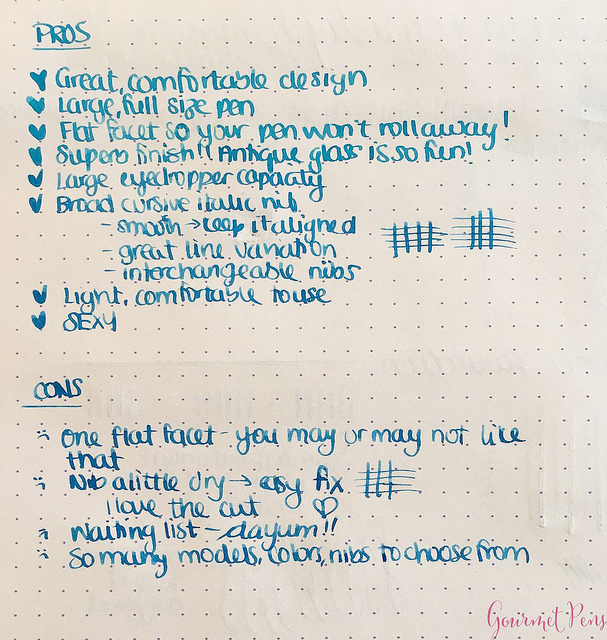 PROS
Great, comfortable design
Large, full size pen
Flat facet so your pen won't roll away!
Superb finish!! Antique glass is so fun!
Large eyedropper capacity
Broad cursive italic nib
- smooth → keep it aligned
- great line variation
- interchangeable nibs
Light, comfortable to use
SEXY
CONS
One flat facet - you may or may not like
that
Nib a little dry → easy fix
I love the cut
Waiting list - dayum!!
So many models, colors, nibs to choose from
Gourmet Pens